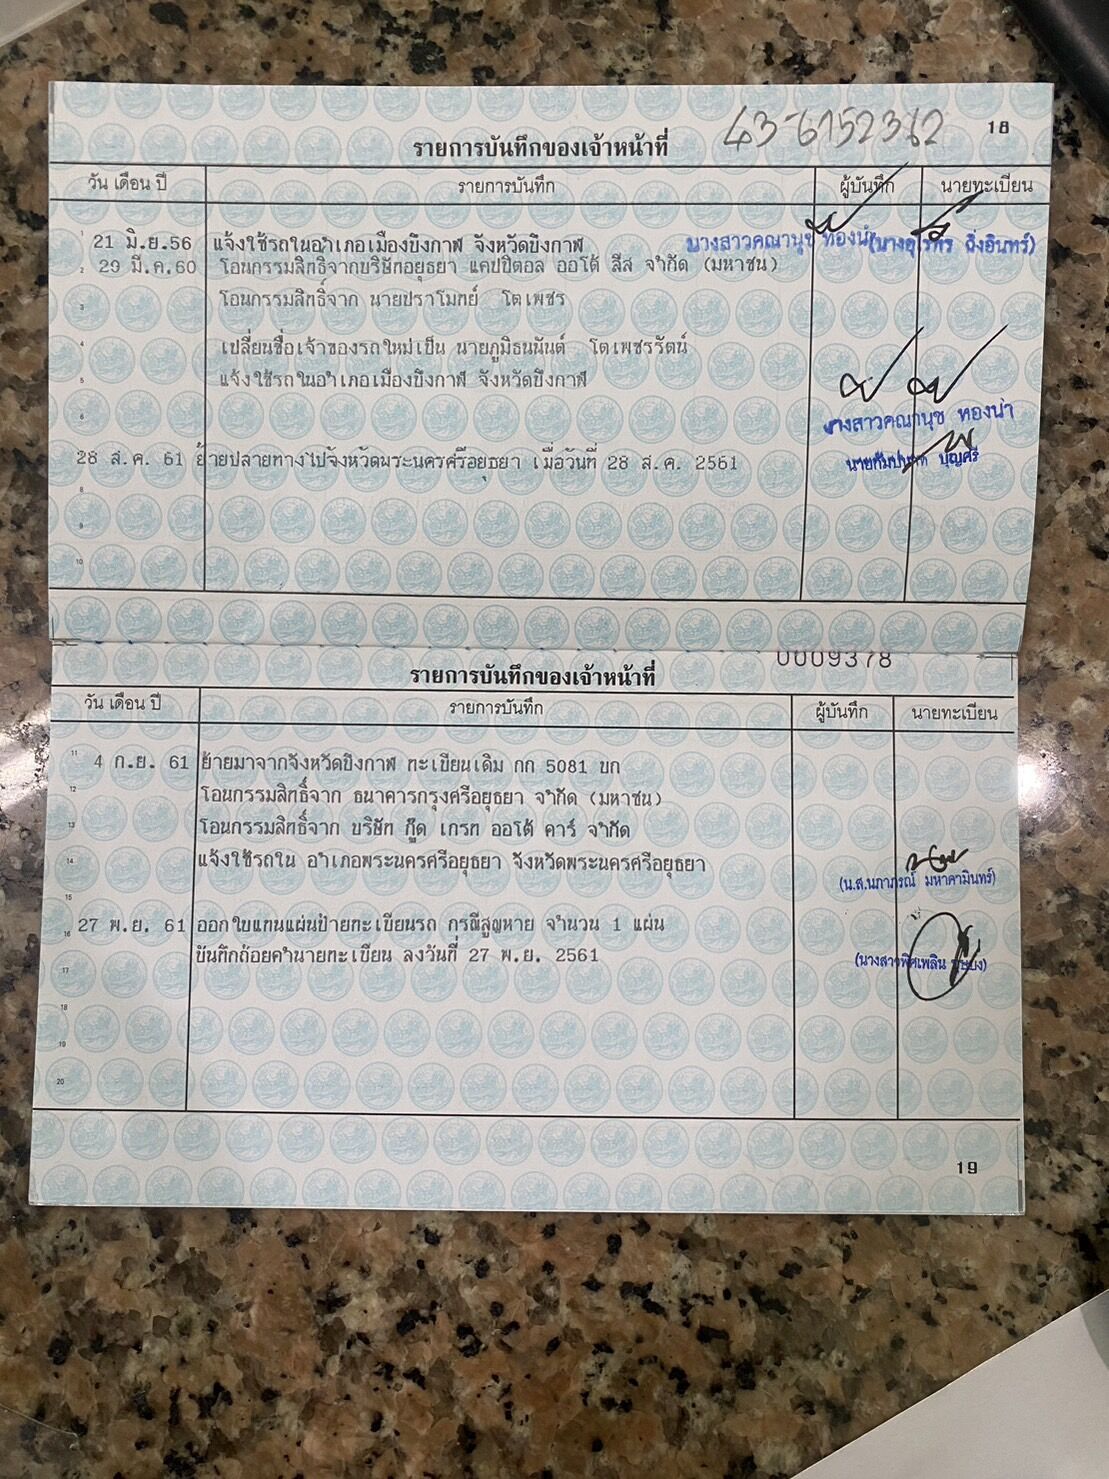 43-6152362
18
รายการบันทึกของเจ้าหน้าที่
วัน เดือน ปี รายการบันทึก ผู้บันทึก นายทะเบียน
1 21 มิ.ย.56 แจ้งใช้รถในอำเภอเมืองบึงกาฬ จังหวัดบึงกาฬ นางสาวคณานุช ทองนำ
2 29 มี.ค.60 โอนกรรมสิทธิจากบริษัทอยุธยา แคปปิตอล ออโต้ ลีส จำกัด (มหาชน)
3 โอนกรรมสิทธิ์จาก นายปราโมทย์ โตเพชร
4 เปลี่ยนชื่อเจ้าของรถใหม่เป็น นายภูมิธนนันต์ โตเพชรรัตน์
5 แจ้งใช้รถในอำเภอเมืองบึงกาฬ จังหวัดบึงกาฬ
6 นางสาวคณานุช ทองนำ
28 ส.ค. 61 ย้ายปลายทางไปจังหวัดพระนครศรีอยุธยา เมื่อวันที่ 28 ส.ค. 2561 บุญศรี
8
9
10
0009378
รายการบันทึกของเจ้าหน้าที่
วัน เดือน ปี รายการบันทึก ผู้บันทึก นายทะเบียน
11 4 ก.ย. 61 ย้ายมาจากจังหวัดบึงกาฬ ทะเบียนเดิม กก 5081 บก
12 โอนกรรมสิทธิ์จาก ธนาคารกรุงศรีอยุธยา จำกัด (มหาชน)
13 โอนกรรมสิทธิ์จาก บริษัท กู๊ด เกรท ออโต้ คาร์ จำกัด
14 แจ้งใช้รถใน อำเภอพระนครศรีอยุธยา จังหวัดพระนครศรีอยุธยา
(น.ส.นภาภรณ์ มหาคามินทร์)
15
16 27 พ.ย. 61 ออกใบแทนแผ่นป้ายทะเบียนรถ กรณีสูญหาย จำนวน 1 แผ่น
17 บันทึกถ้อยคำนายทะเบียน ลงวันที่ 27 พ.ย. 2561
18
19
20
19